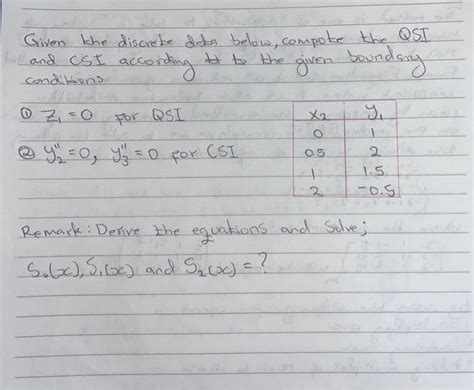 Given the discrete data below, compute the QSI
and CSI according to to the given boundary
conditions
① Z₁ = 0 for QSI
② y₂'' = 0, y₃'' = 0 for CSI
x₂ y₁
0 1
0.5 2
1 1.5
2 -0.5
Remark: Derive the equations and Solve;
S₀(x), S₁(x) and S₂(x) = ?